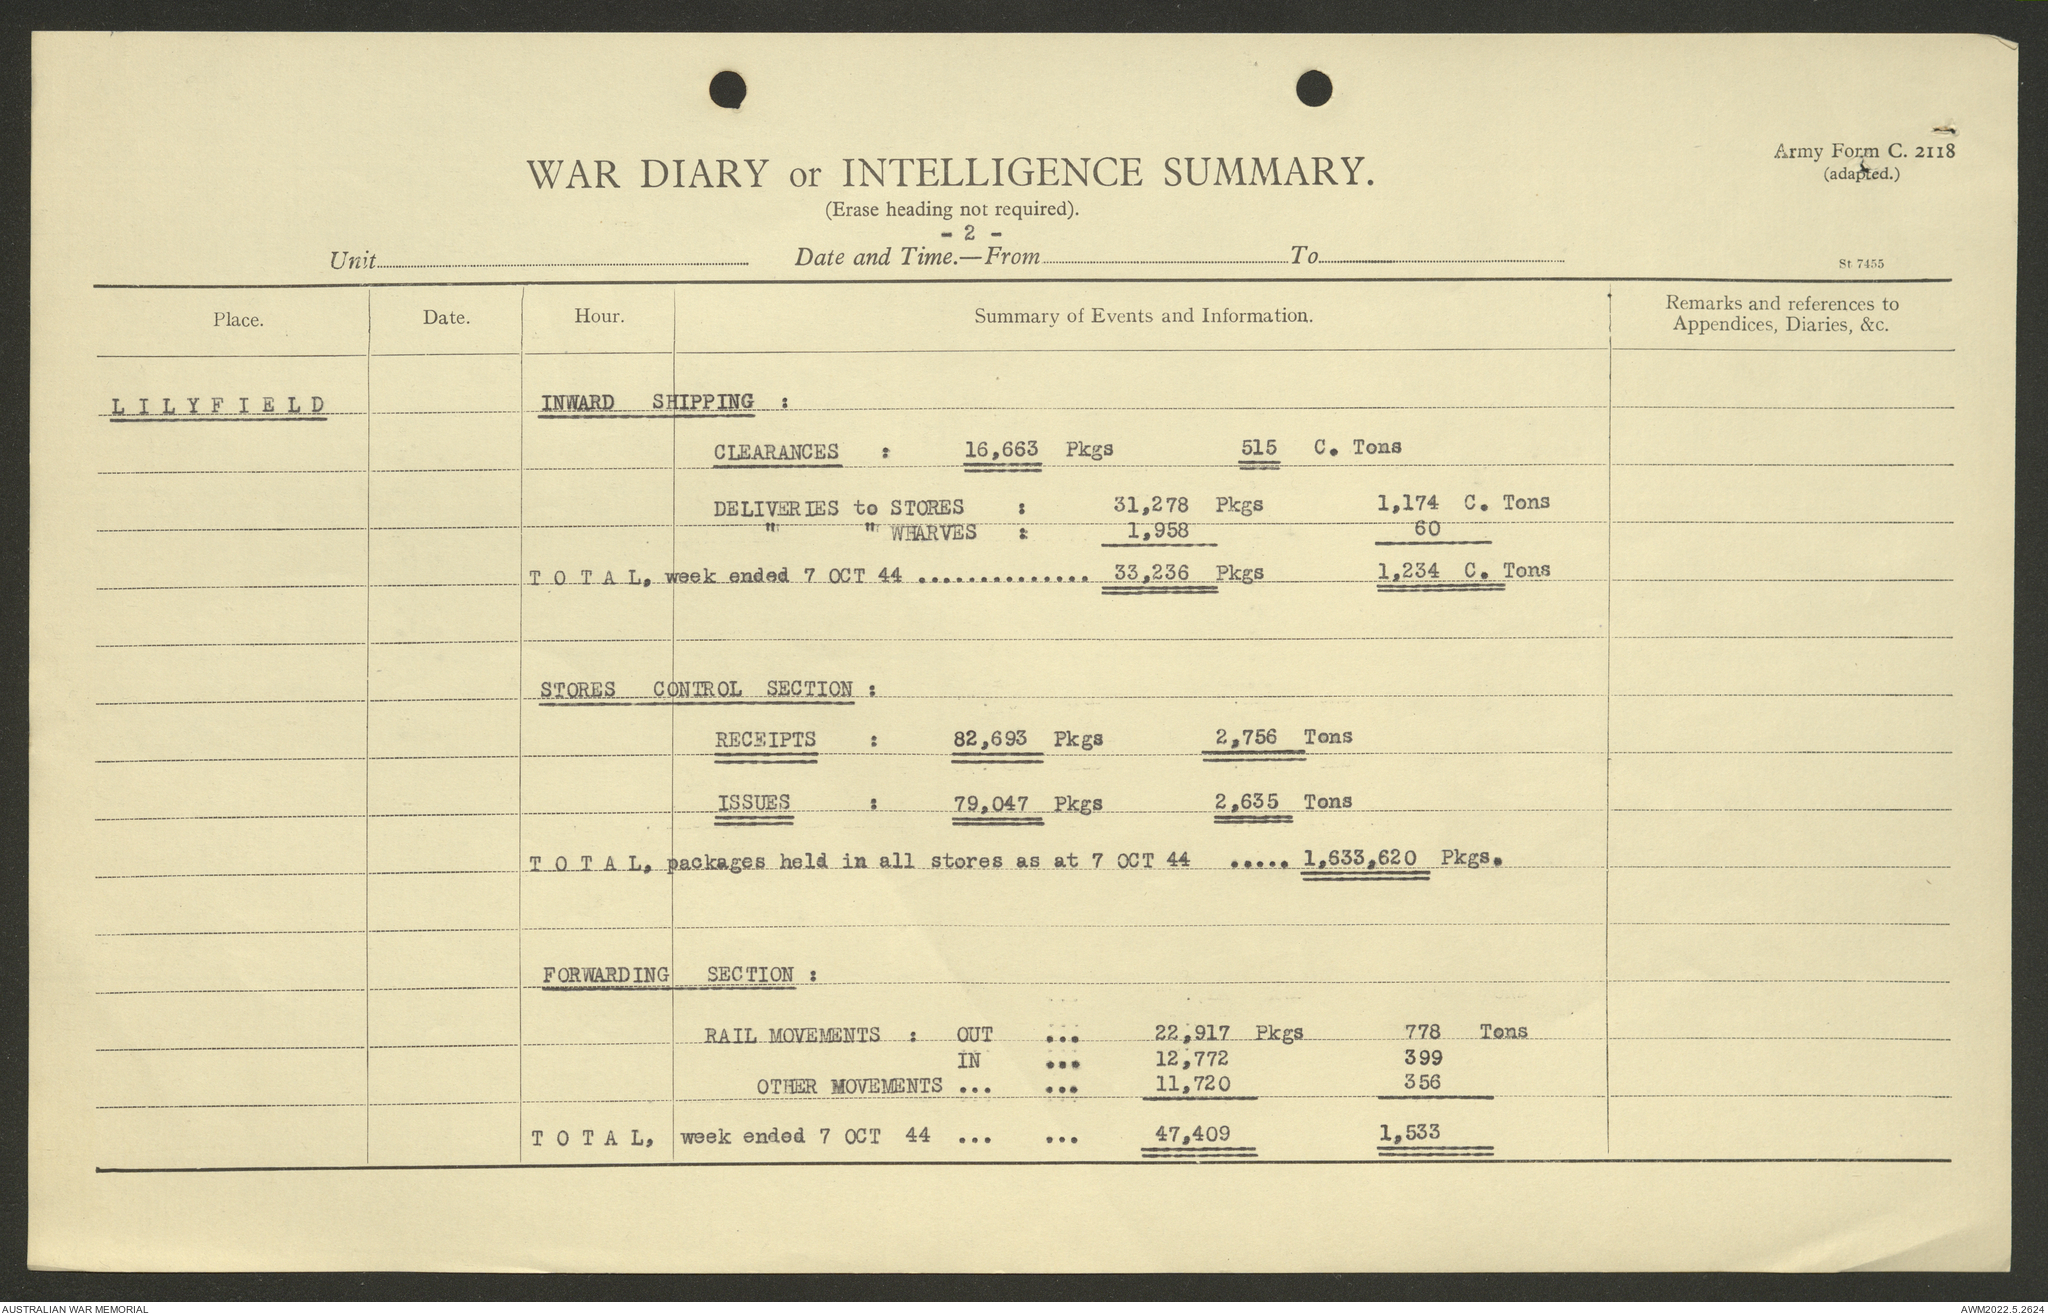 Army Form C. 2118
(adapted.)
WAR DIARY or INTELLIGENCE SUMMARY.
(Erase heading not required).
- 2 -
Unit Date and Time.—From To
St 7455
Place. Date. Hour. Summary of Events and Information. Remarks and references to Appendices, Diaries, &c.
LILYFIELD INWARD SHIPPING :
CLEARANCES : 16,663 Pkgs 515 C. Tons
DELIVERIES to STORES : 31,278 Pkgs 1,174 C. Tons
" " WHARVES : 1,958 60
TOTAL, week ended 7 OCT 44 .............. 33,236 Pkgs 1,234 C. Tons
STORES CONTROL SECTION :
RECEIPTS : 82,693 Pkgs 2,756 Tons
ISSUES : 79,047 Pkgs 2,635 Tons
TOTAL, packages held in all stores as at 7 OCT 44 ..... 1,633,620 Pkgs.
FORWARDING SECTION :
RAIL MOVEMENTS : OUT ... 22,917 Pkgs 778 Tons
IN ... 12,772 399
OTHER MOVEMENTS ... ... 11,720 356
TOTAL, week ended 7 OCT 44 ... ... 47,409 1,533
AUSTRALIAN WAR MEMORIAL AWM2022.5.2624